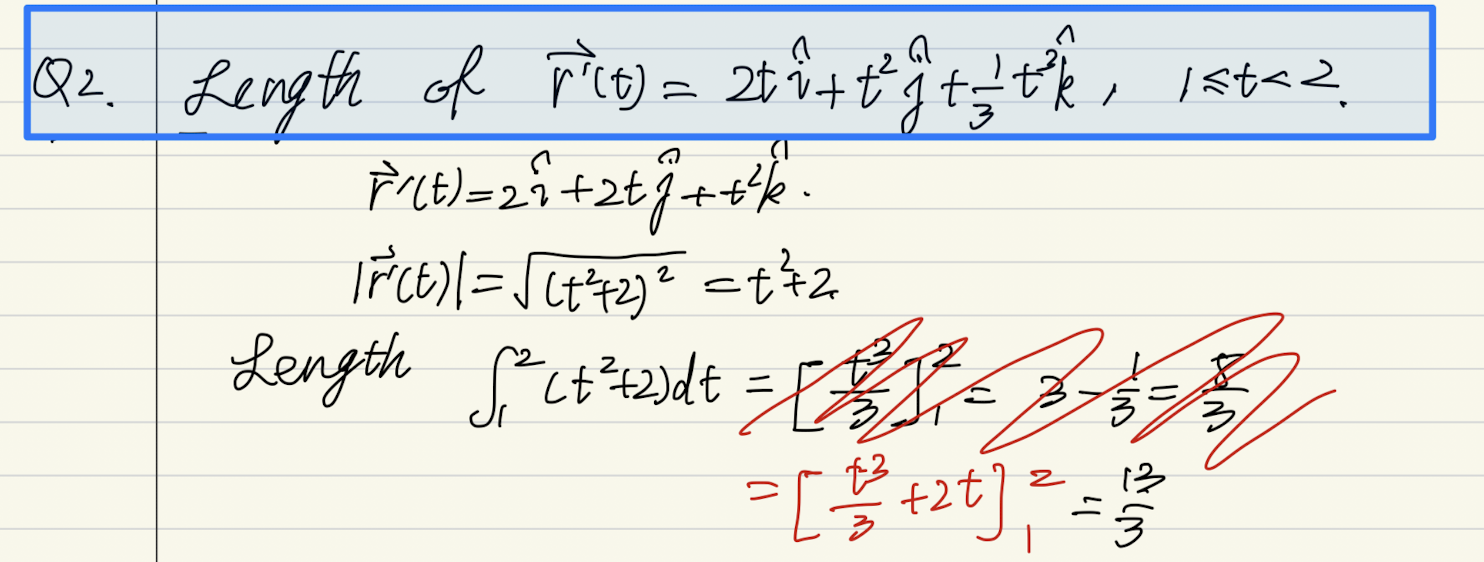 Q2. Length of r⃗'(t) = 2t î + t² ĵ + 1/3 t³ k̂, 1 ≤ t < 2.
r⃗'(t) = 2 î + 2t ĵ + t² k̂.
|r⃗'(t)| = √((t²+2)²) = t²+2
Length ∫₁² (t²+2)dt = [t³/3]₁² = 3 - 1/3 = 8/3
= [t³/3 + 2t]₁² = 13/3